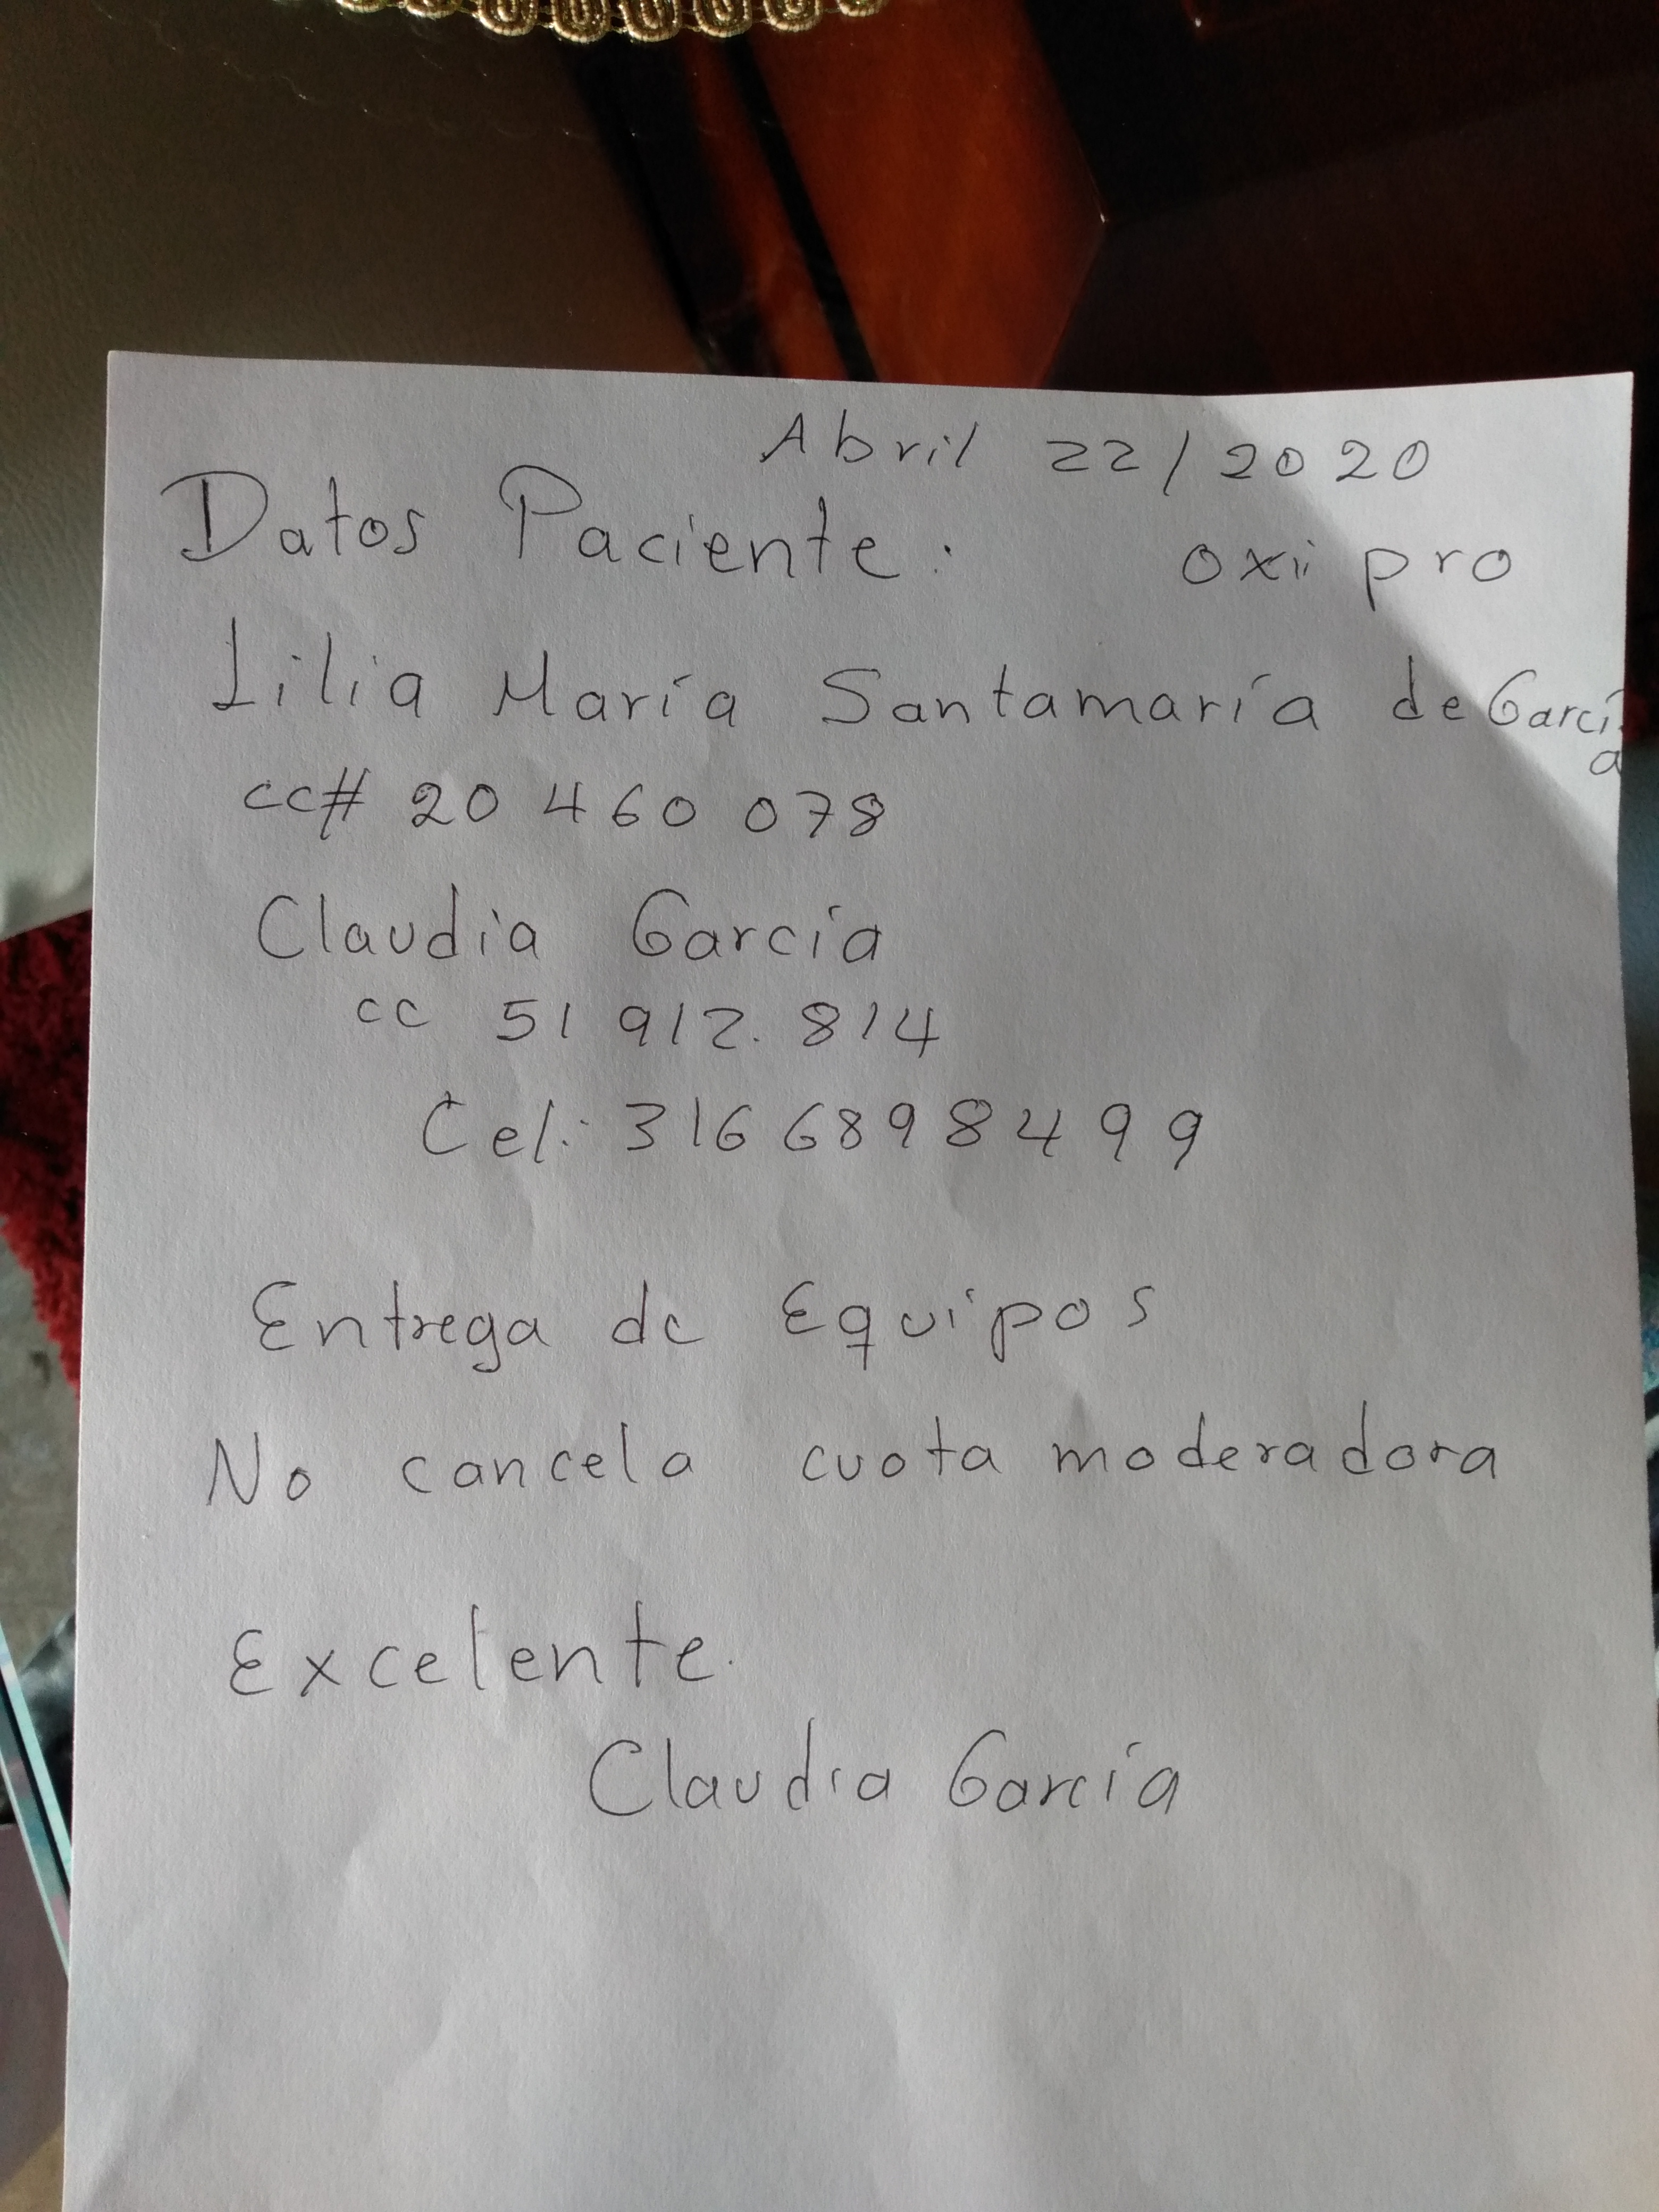 Abril 22/2020
Datos Paciente: oxii pro
Lilia María Santamaría de García
cc# 20 460 078
Claudia García
cc 51 912.814
Cel: 316 6898499
Entrega de Equipos
No cancela cuota moderadora
Excelente.
Claudia García